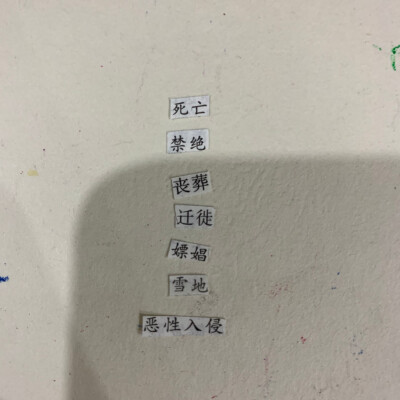 死亡
禁绝
丧葬
迁徙
嫖娼
雪地
恶性入侵